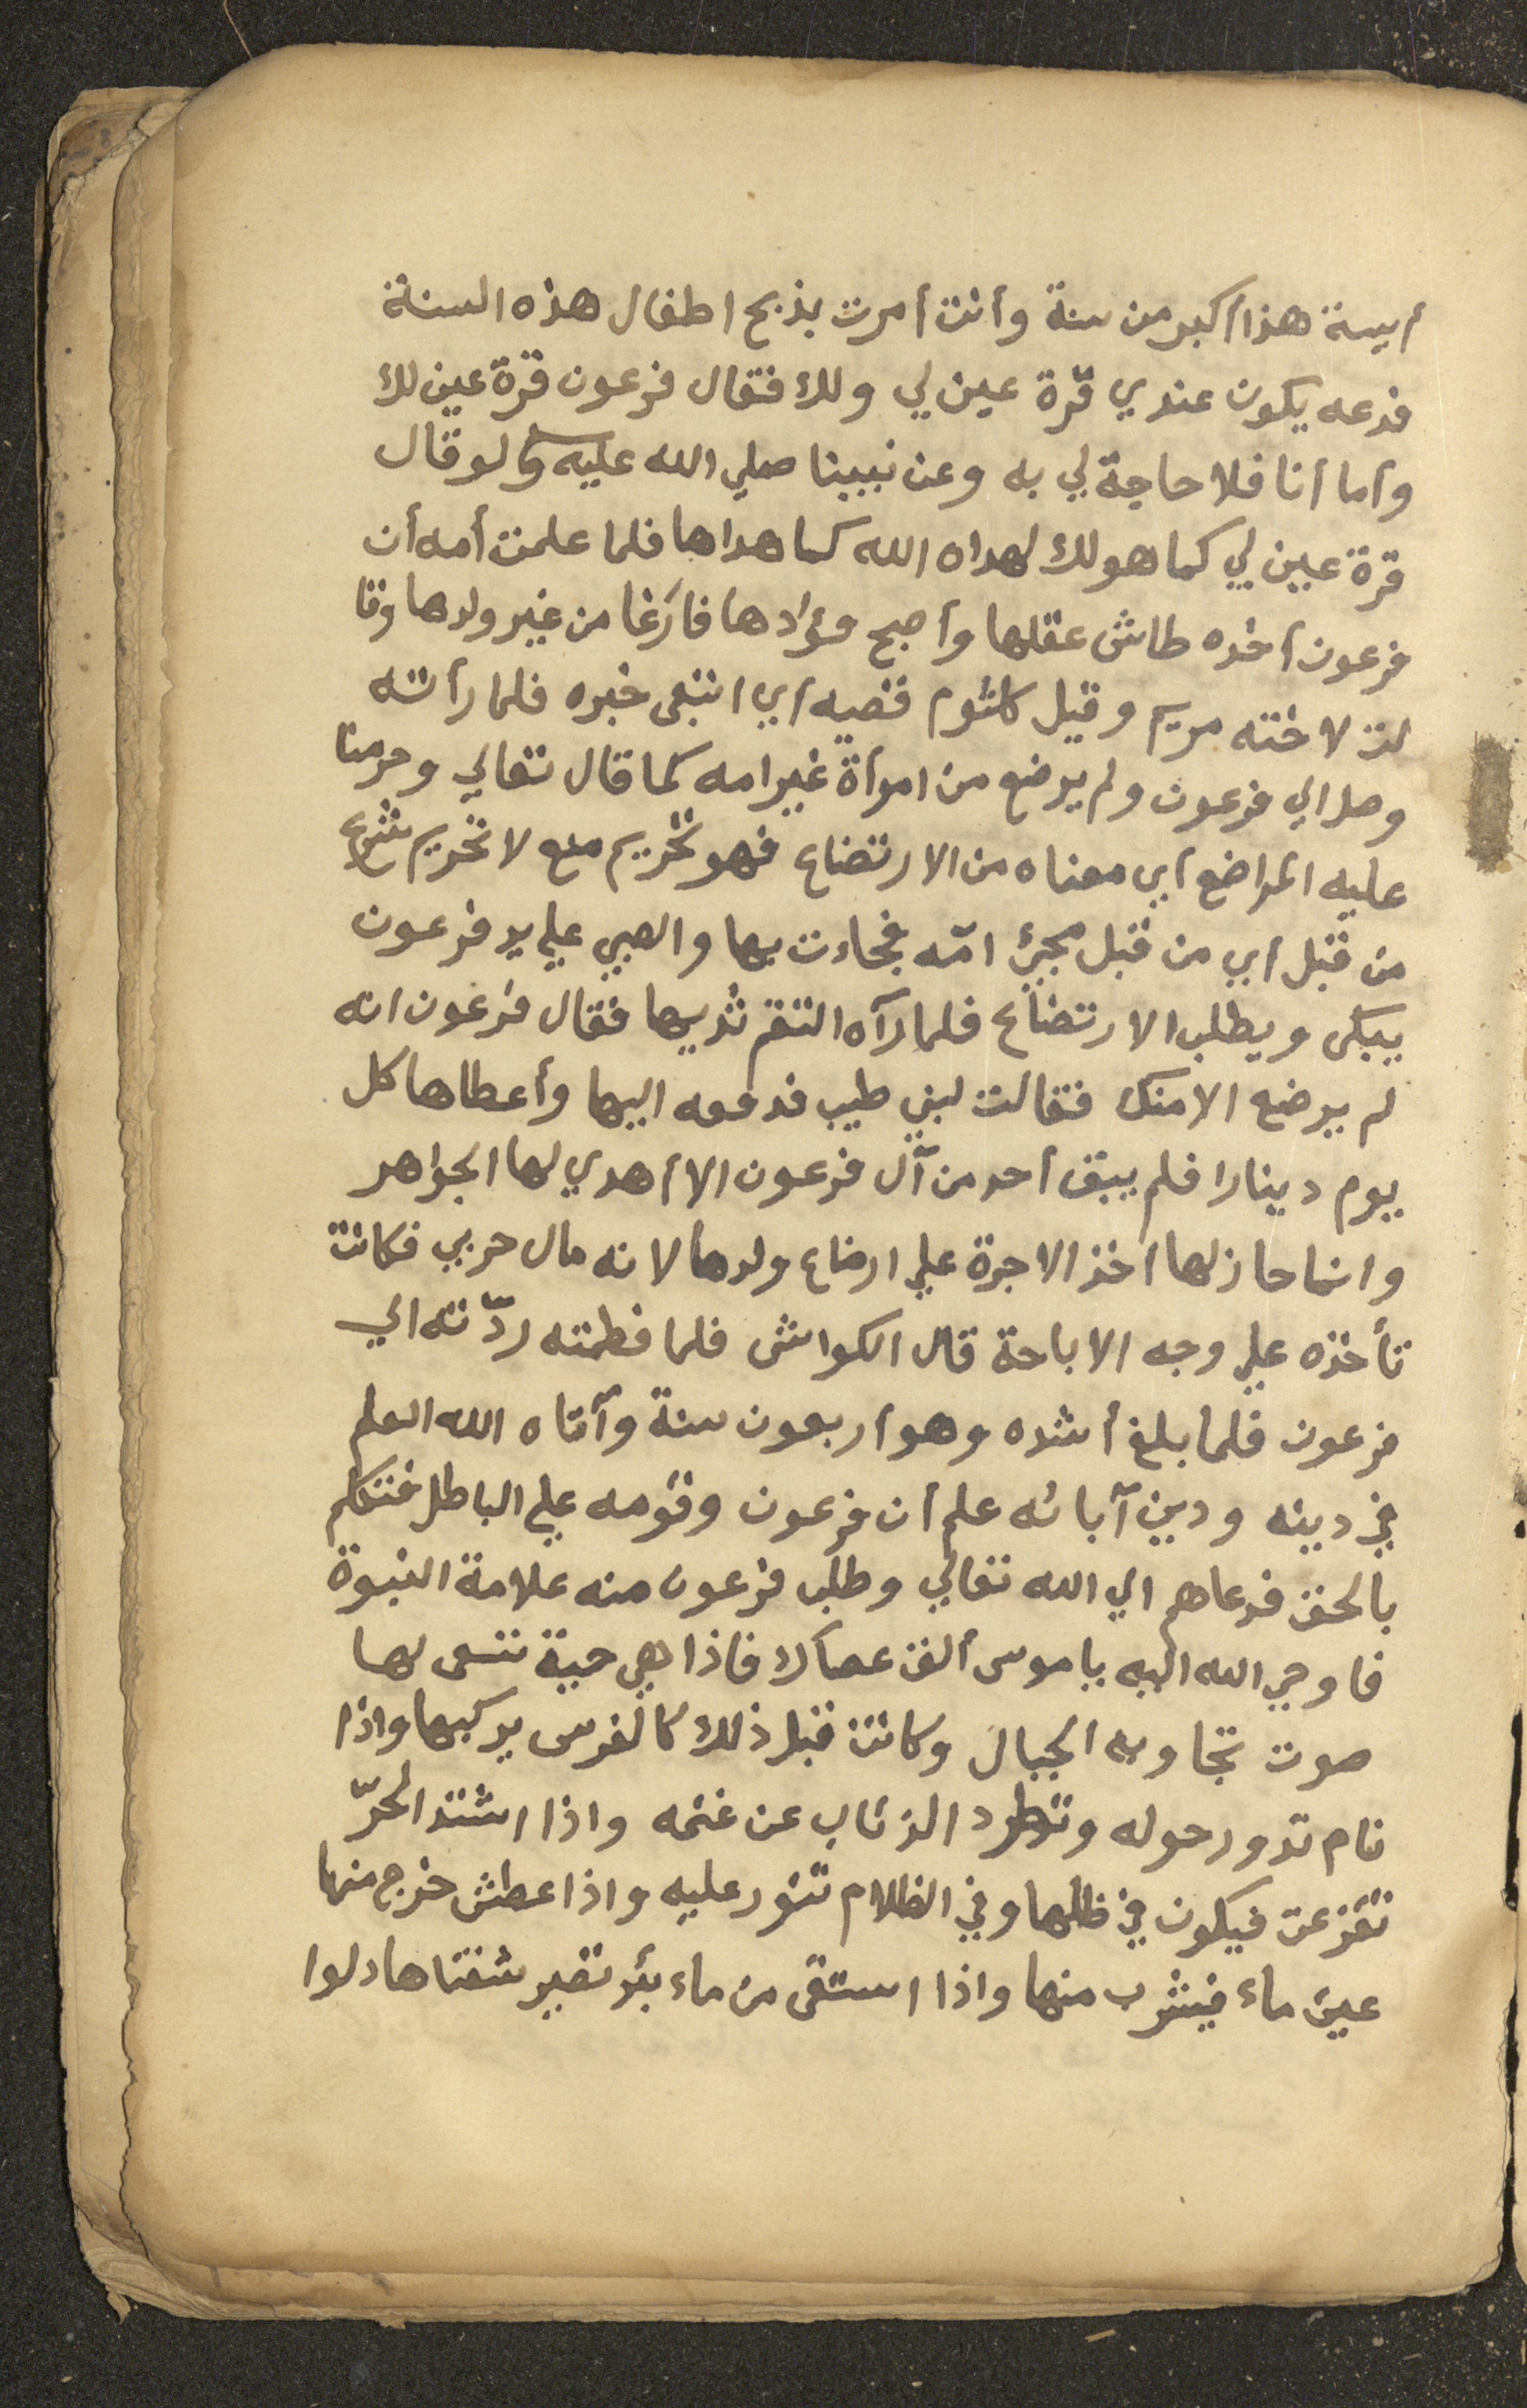 أيسة هذا أكبر من سنة وأنت أمرت بذبح اطفال هذه السنة
فدعه يكون عندي قرّة عين لي ولك فقال فرعون قرّة عين لك
وأما أنا فلا حاجة لي به وعن نبينا صلي الله عليه ولو قال
قرة عين لي كما هو لك لهداه الله كما هداها فلما علمت أمه أن
فرعون أخذه طاش عقلها وأصبح فؤادها فارغا من غير ولدها وقا
لت لاخته مريم وقيل كلثوم قصيه أي اتبعى خبره فلما رأته
وصل الي فرعون ولم يرضع من امرأة غير امه كما قال تعالي وحرمنا
عليه المراضع أي معناه من الارتضاع فهو تحريم منع لا تحريم شرع
من قبل أي من قبل مجئ امّه فجاءت بها والصبي علي يد فرعون
يبكى ويطلب الارتضاع فلما رآه التقم ثديها فقال فرعون انه
لم يرضع الا منك فقالت لبني طيب فدفعه اليها وأعطاها كل
يوم دينارا فلم يبق أحد من آل فرعون الا أهدي لها الجواهر
وانما جاز لها اخذ الاجرة علي ارضاع ولدها لانه مال حربي فكانت
تأخذه علي وجه الاباحة قال الكواشى فلما فطمته ردّته الي
فرعون فلما بلغ أشده وهو أربعون سنة وآتاه الله العلم
في دينه ودين آبائه علم أن فرعون وقومه علي الباطل فتكلم
بالحق فدعاهم الي الله تعالي وطلب فرعون منه علامة النبوة
فاوحي الله اليه يا موسى ألق عصاك فاذا هي حية تسعى لها
صوت تجاوبه الجبال وكانت قبل ذلك كالفرس يركبها واذا
نام تدور حوله وتطرد الذئاب عن غنمه واذا اشتد الحرّ
تفزعت فيكون في ظلها وفي الظلام تنور عليه واذا عطش خرج منها
عين ماء فيشرب منها واذا استقى من ماء بئر تصير شفتاها دلوا